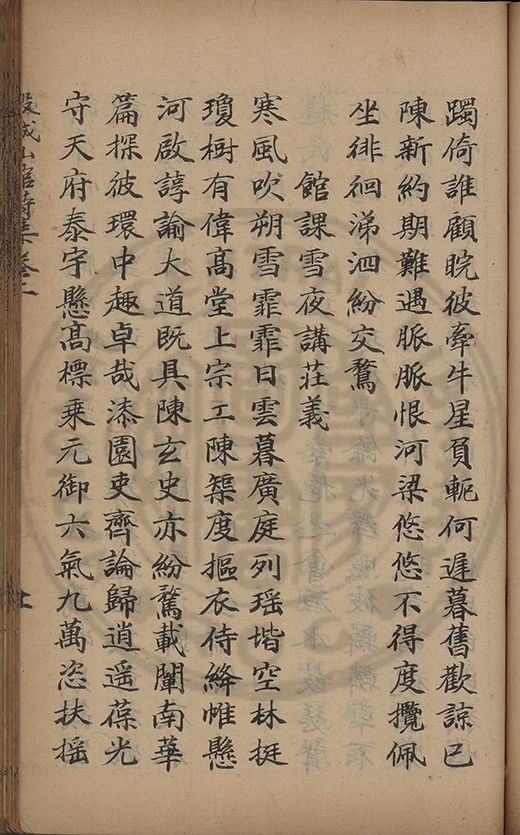 躅倚誰顧睆彼牽牛星負軛何遲暮舊歡諒已
陳新約期難遇脈脈恨河梁悠悠不得度攬佩
坐徘徊涕泗紛交鶩
館課雪夜講莊義
寒風吹朔雪霏霏日雲暮廣庭列瑶堦空林挺
瓊樹有偉高堂上宗工陳榘度摳衣侍絳帷懸
河啟諄論大道既具陳玄史亦紛騖載闡南華
篇探彼環中趣卓哉漆園吏齊論歸逍遥葆光
守天府泰宇懸高標乗元御六氣九萬恣扶摇
山官詩集卷二